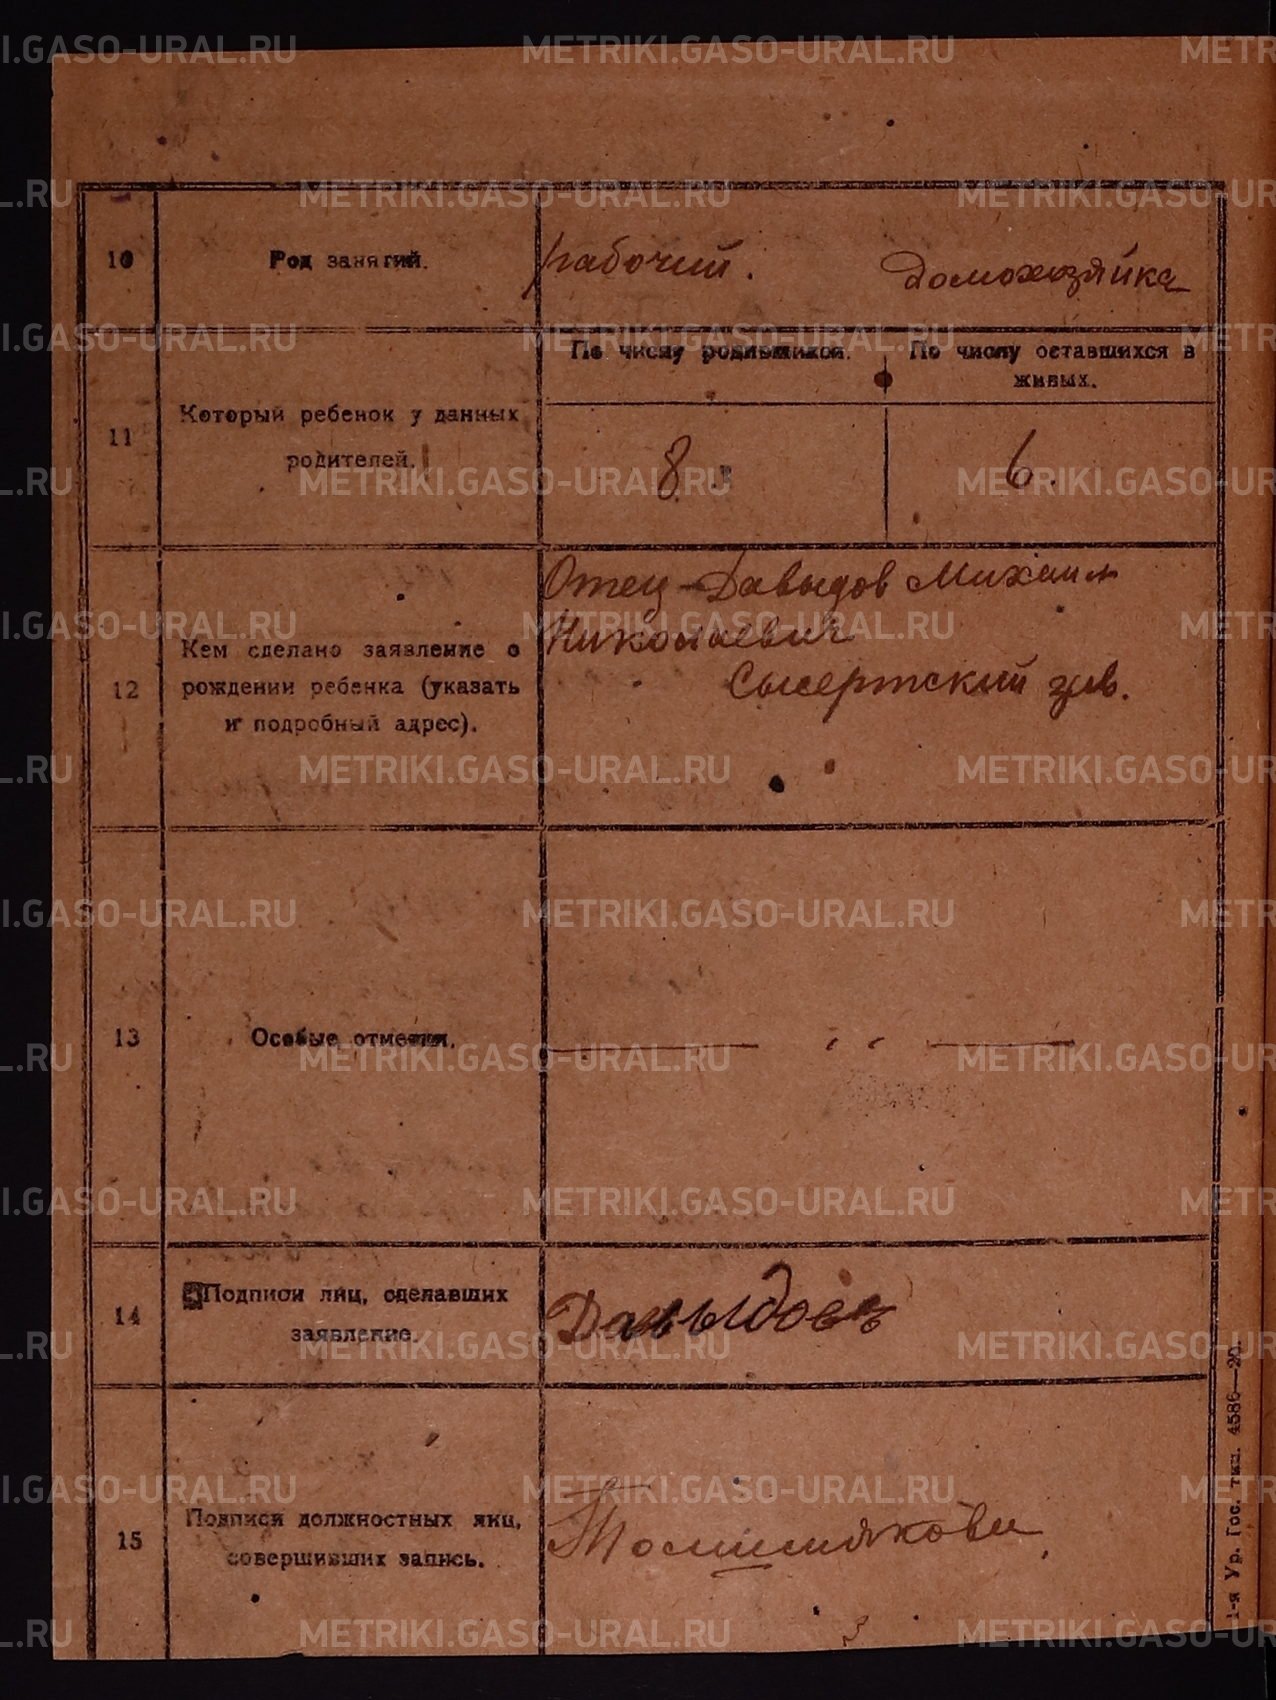 10
Род занятий.
рабочий.
Домохозяйка
11
Который ребенок у данных
родителей.
По числу родившихся.
По числу оставшихся в
живых.
8.
6.
12
Кем сделано заявление о
рождении ребенка (указать
и подробный адрес).
Отец - Давыдов Михаил
Николаевич
Сысертский зав.
13
Особые отметки.
14
Подписи лиц, сделавших
заявление.
Давыдовъ
15
Подписи должностных лиц,
совершивших запись.
1-я Ур. Гос. тип. 4586—20.
METRIKI.GASO-URAL.RU